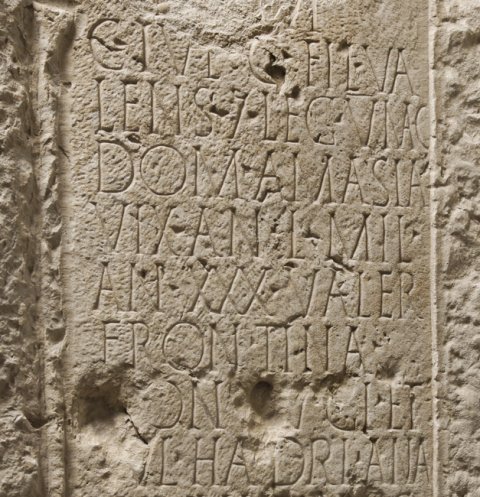 M
C IVL C FIL EVA
LENS V LEG
DOM AMASIA
VIX AN L MIL
AN XXX VALER
FRONTINA
CON CL ET
VL HADRIANA